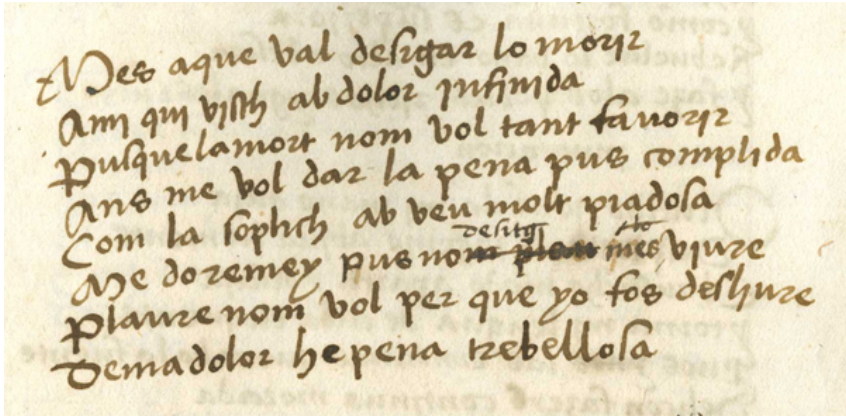 Mes aque val desigar lo morir
Ami qui visch ab dolor infinida
Pusquelamort nom vol tant favorir
Ans me vol dar la pena pus complida
Com la soplich ab veu molt piadosa
desitg
Me do remey pus nom plau mes viure
Plaure nom vol per que yo fos desliure
Dema dolor he pena trebellosa